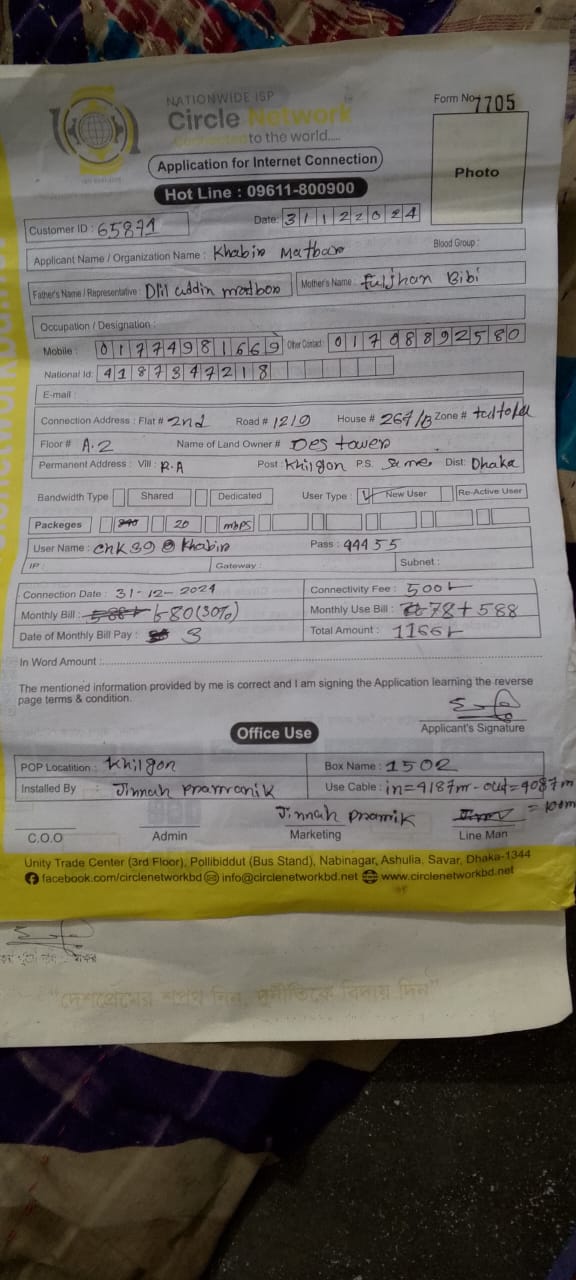 NATIONWIDE ISP
Circle Network
Connected to the world.....
Form No 7705
Application for Internet Connection
Photo
Hot Line : 09611-800900
Customer ID : 65871
Date: 31122024
Applicant Name / Organization Name : Khabir Matbar
Blood Group :
Father's Name / Representative : Dlil uddin matbor
Mother's Name : Fuljhan Bibi
Occupation / Designation :
Mobile : 01774981669 Other Contact : 01708892580
National Id: 4187347218
E-mail :
Connection Address : Flat # 2nd Road # 12/9 House # 267/B Zone #
Floor # A.2 Name of Land Owner # Des tower
Permanent Address : Vill : R.A Post : Khilgon P.S. Same Dist: Dhaka
Bandwidth Type Shared Dedicated User Type : New User Re-Active User
Packeges 20 mbps
User Name : Pass : 44455
IP : Gateway : Subnet :
Connection Date : 31-12-2024 Connectivity Fee : 500/-
Monthly Bill : 680(30%) Monthly Use Bill : 78+588
Date of Monthly Bill Pay : 3 Total Amount : 1166/-
In Word Amount :
The mentioned information provided by me is correct and I am signing the Application learning the reverse
page terms & condition.
Applicant's Signature
Office Use
POP Locatition : Khilgon Box Name : 1502
Installed By : Jinnah pramanik Use Cable : in=4187m-out=4087m
=100m
Jinnah pramik
C.O.O Admin Marketing Line Man
Unity Trade Center (3rd Floor), Pollibiddut (Bus Stand), Nabinagar, Ashulia, Savar, Dhaka-1344
facebook.com/circlenetworkbd info@circlenetworkbd.net www.circlenetworkbd.net
"দেশপ্রেমের শপথ নিন, দুর্নীতিকে বিদায় দিন"